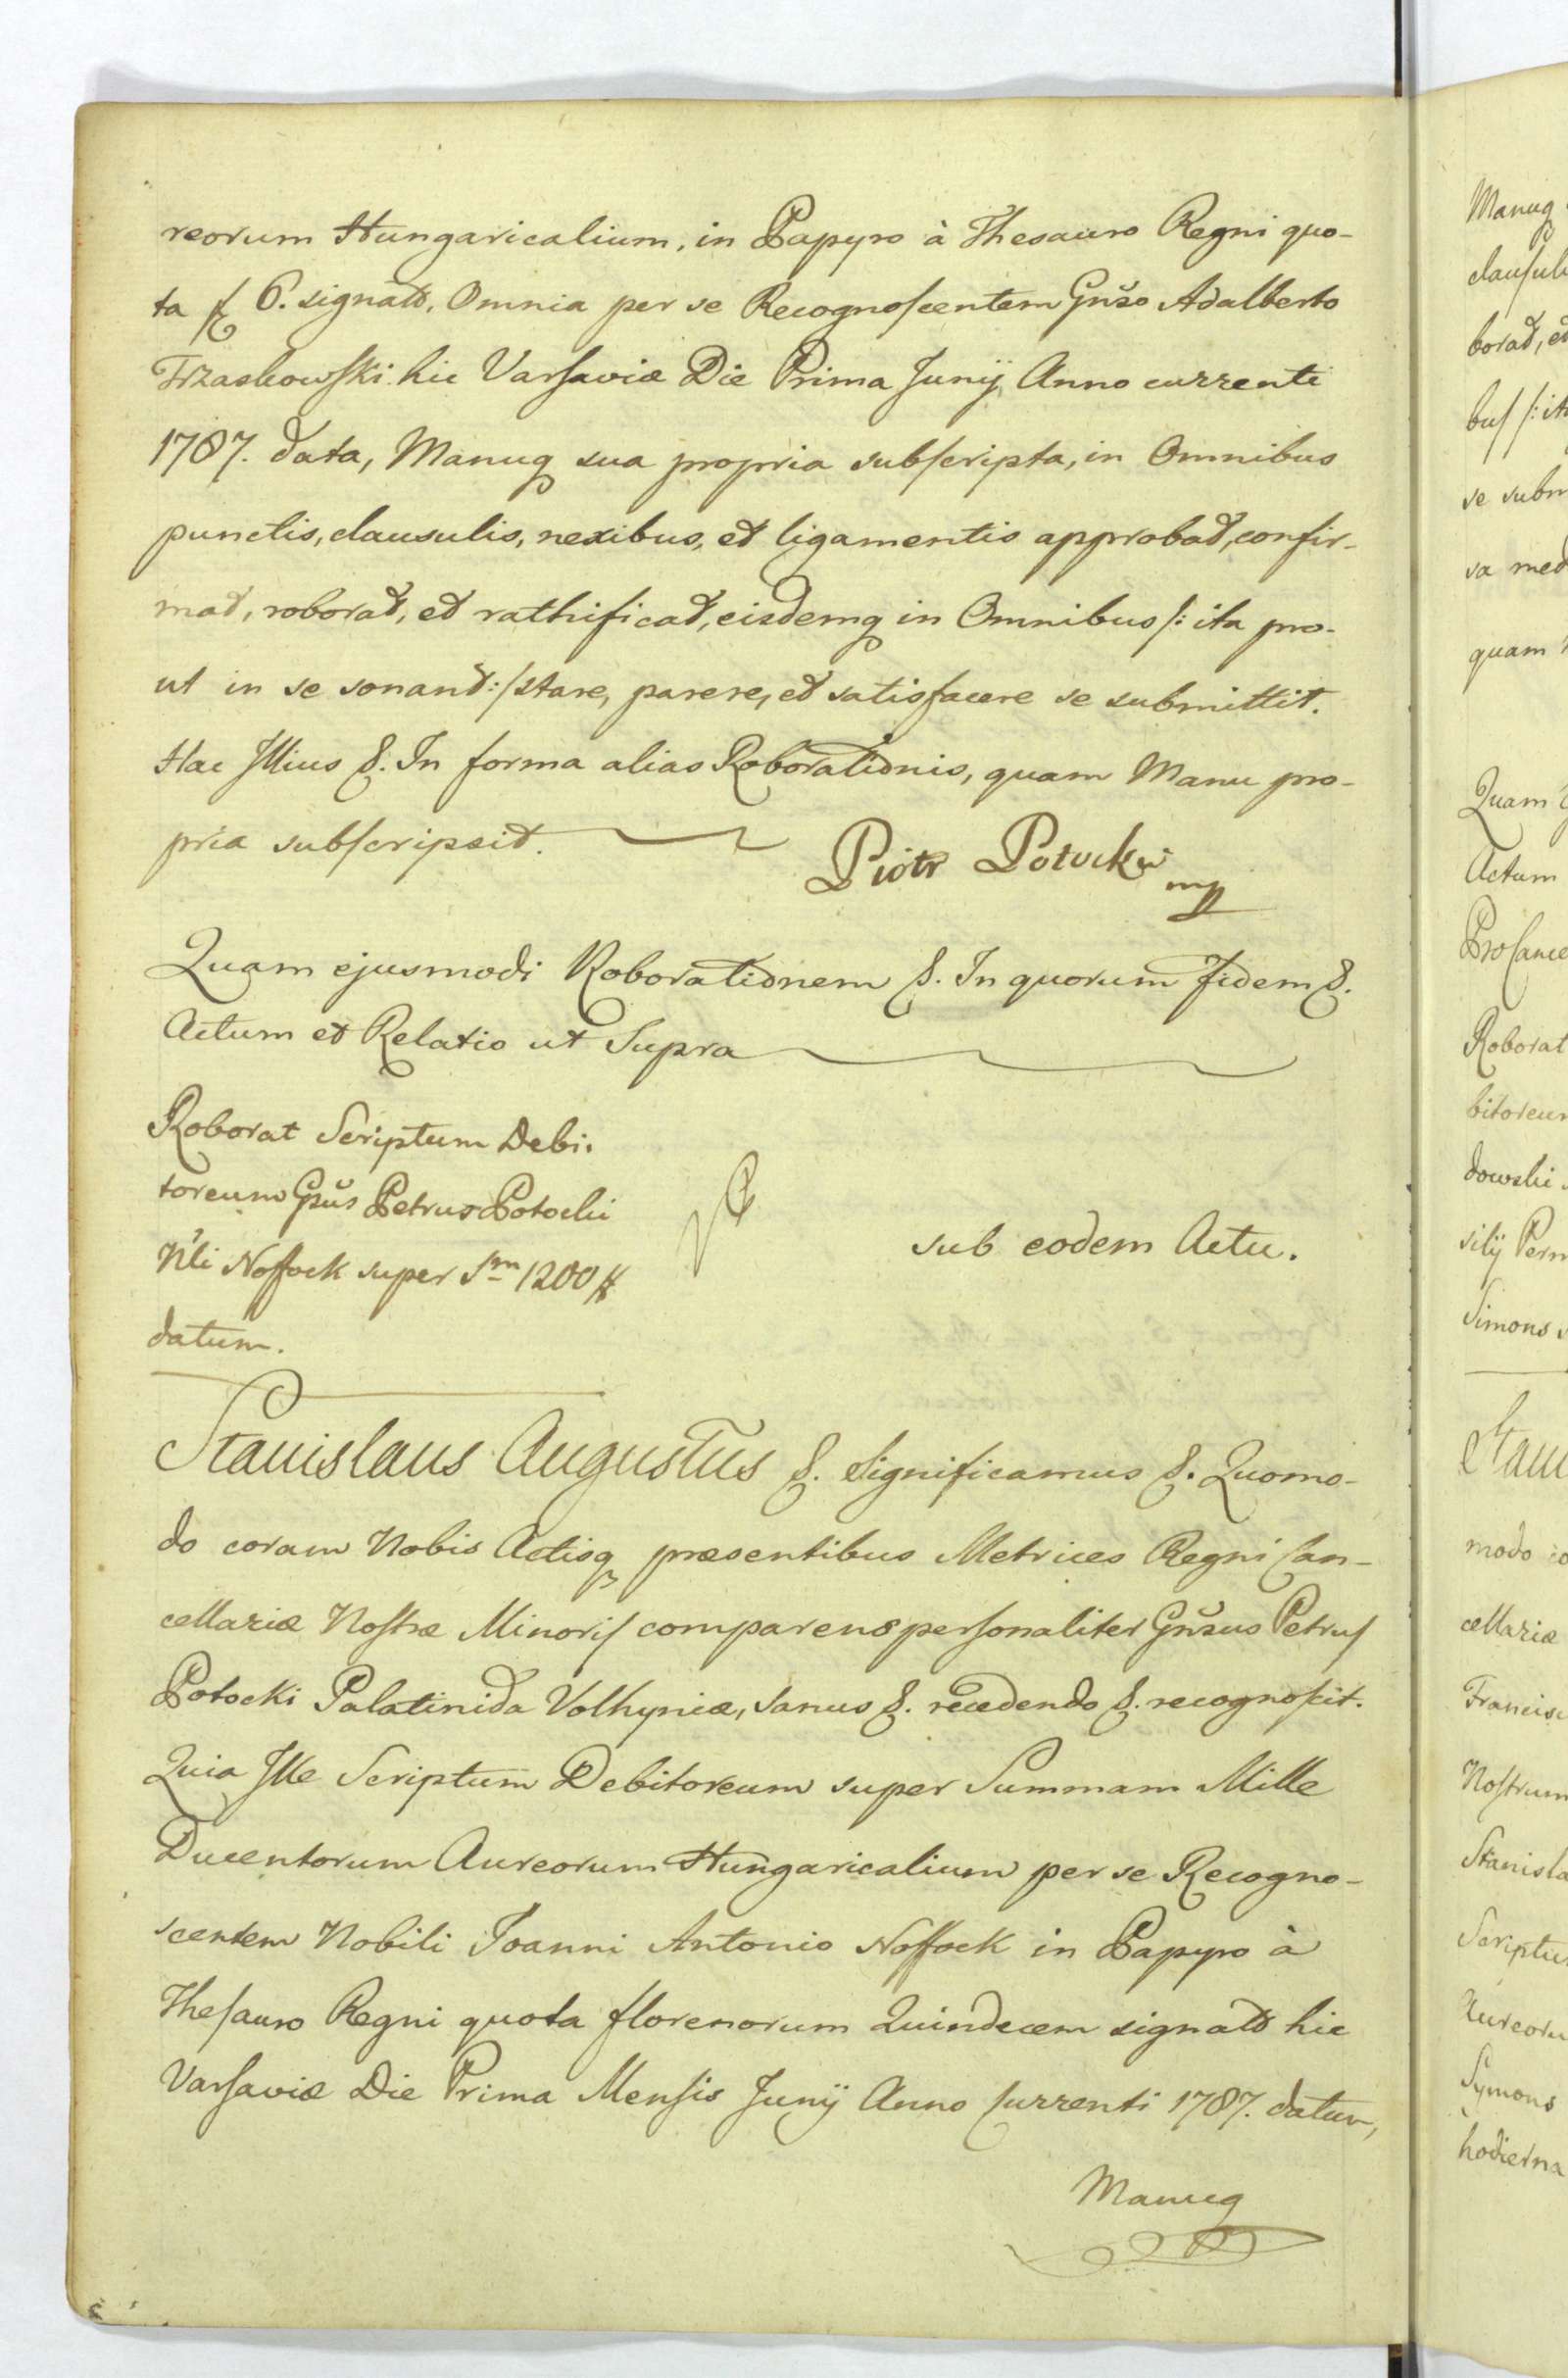 reorum Hungaricalium, in Papyro à Thesauro Regni quo-
ta f 6. signat, Omnia per se Recognoscentem Gnso Adalberto
Trzaskowski hic Varsaviæ Die Prima Junij Anno currenti
1787. data, Manuq sua propria subscripta, in Omnibus
punctis, clausulis, nexibus, et ligamentis approbat, confir-
mat, roborat, et rathificat, eisdemq in Omnibus /: ita pro-
ut in se sonant :/ stare, parere, et satisfacere se submittit.
Hac Illius &. In forma alias Roborationis, quam Manu pro-
pria subscripsit.
Piotr Potocki mp
Quam ejusmodi Roborationem &. In quorum Fidem &.
Actum et Relatio ut Supra
Roborat Scriptum Debi-
toreum Gsus Petrus Potocki
Nli Noffock super Sm 1200 #
datum.
sub eodem Actu.
Stanislaus Augustus &. Significamus &. Quomo-
do coram Nobis Actisq præsentibus Metrices Regni Can-
cellariæ Nostræ Minoris comparens personaliter Gnsus Petrus
Potocki Palatinida Volhyniæ, sanus &. recedendo &. recognoscit.
Quia Ille Scriptum Debitoreum super Summam Mille
Ducentorum Aureorum Hungaricalium per se Recogno-
scentem Nobili Joanni Antonio Noffock in Papyro à
Thesauro Regni quota florenorum Quindecem signato hic
Varsaviæ Die Prima Mensis Junij Anno Currenti 1787. datum,
Manuq
Manuq
clausuli
borat, et
bus /: ita
se subm
sa med
quam
Quam
Actum
Roborat
bitoreum
dowski
silij Perm
Simons
Stani
modo co
cellariæ
Francisc
Nostrum
Stanisla
Scriptu
Aureoru
Symons
hodierna